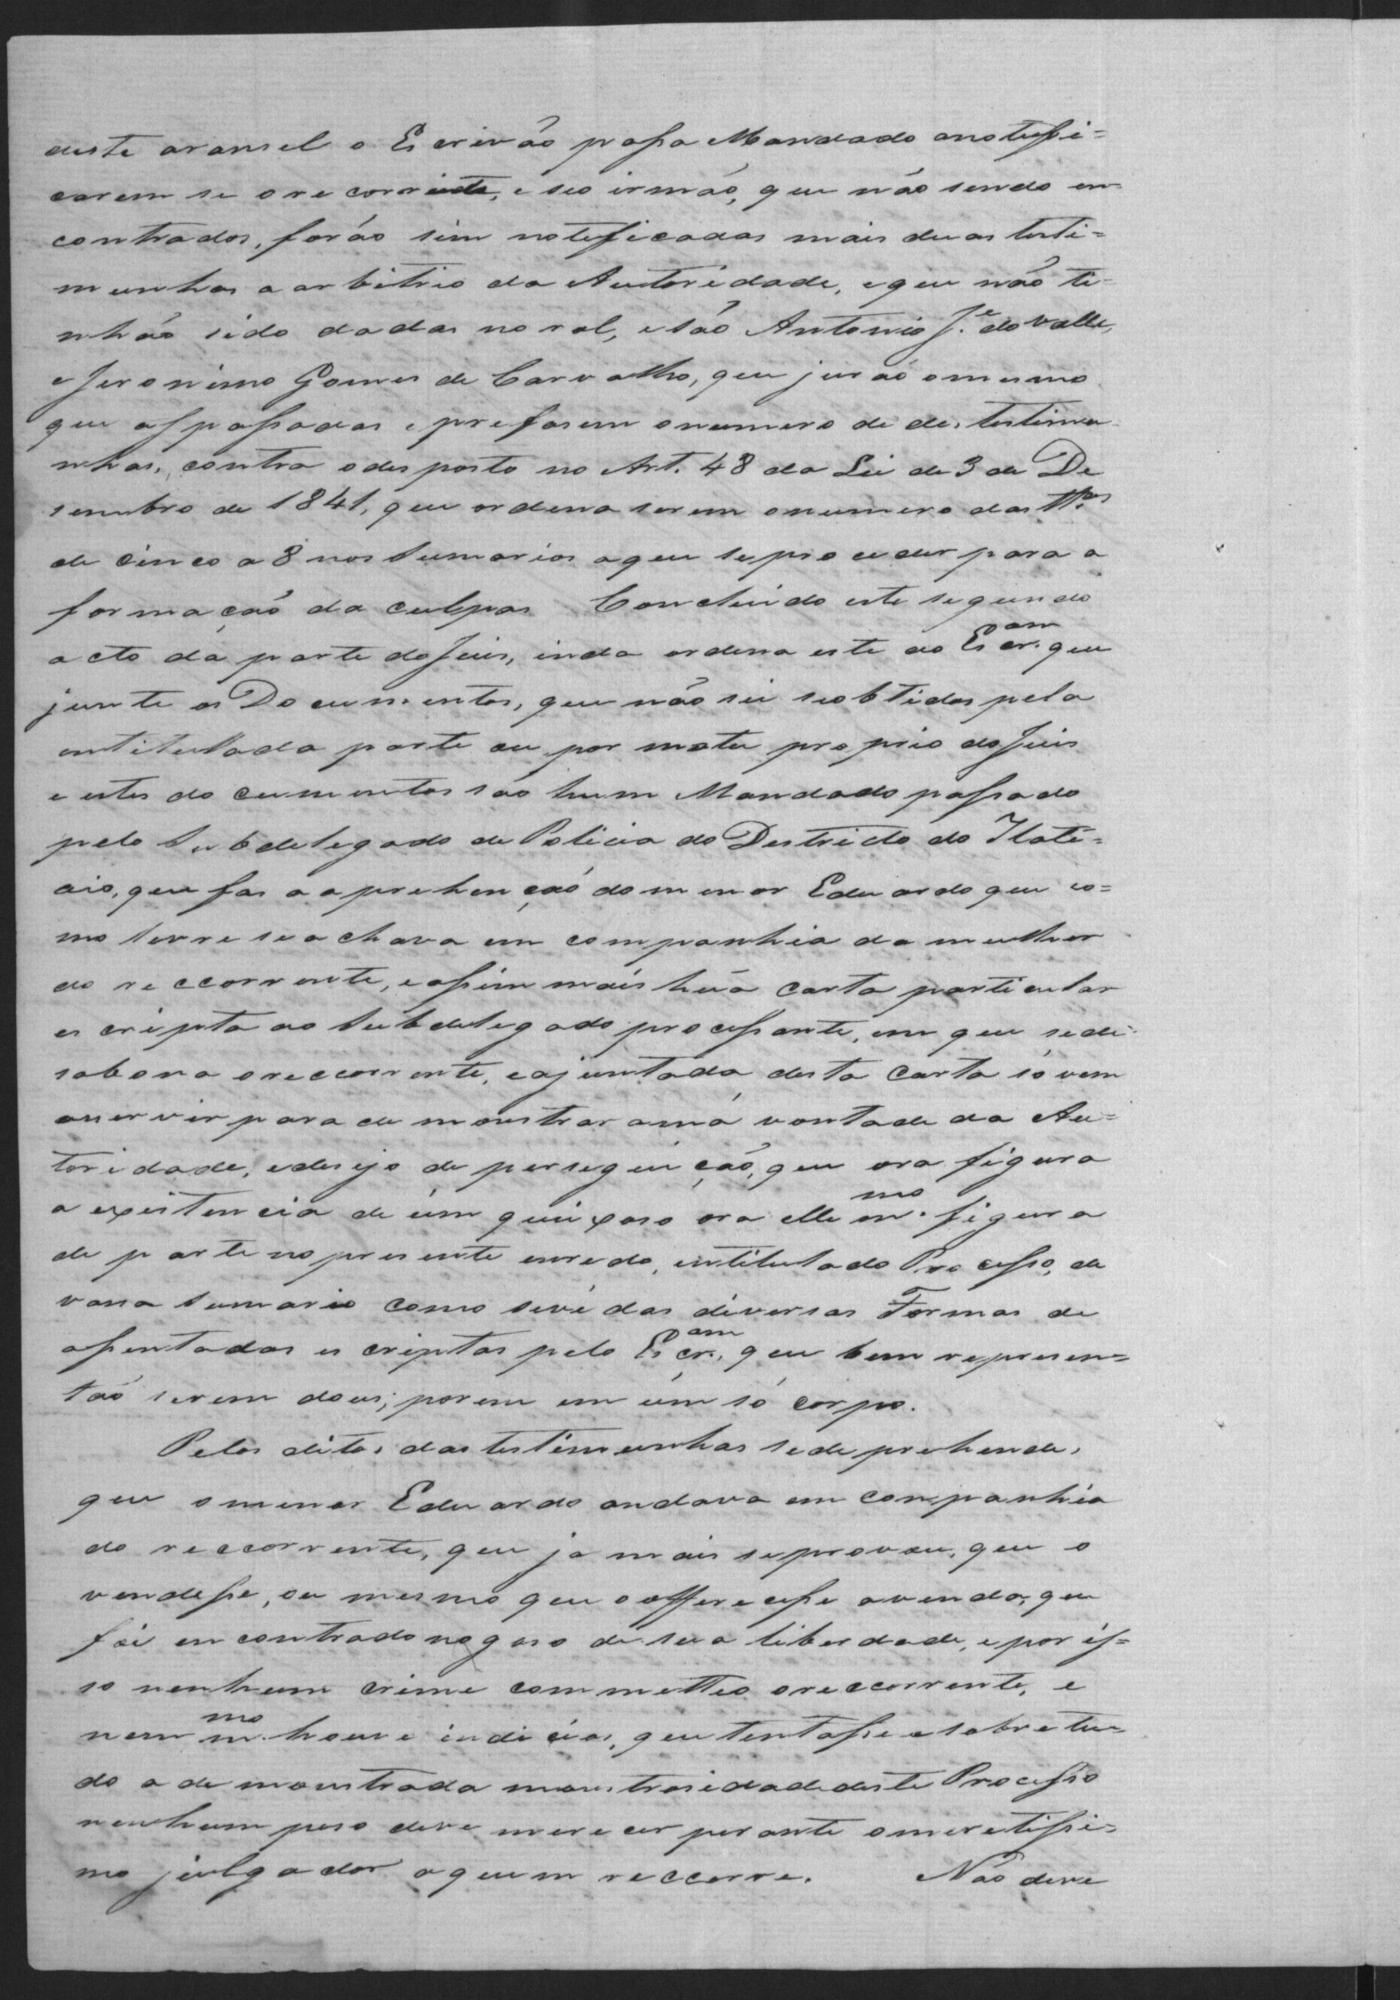 deste aransel o Escrivão passa Mandado a notefi=
carem se o recorriente, e seo irmão, que não sendo en
contrados, forão sim noteficadas mais duas testi=
munhas a arbitrio da Autoridade, e que não ti-
nhão sido dadas no rol, e são Antonio J.e do Valle,
e Jeronimo Gomes de Carvalho, que jurão o mesmo
que as passadas e prefasem o numero de des testimu
nhas, contra o desposto no Art. 48 da Lei de 3 de De
sembro de 1841, que ordena serem o numero das ttas
de cinco a 8 nos sumarios a que se proceder para a
formação da culpa. Concluido este segundo
acto da parte do Juis, inda ordena este ao Escr.am que
junte os Documentos, que não sei se obtidos pela
intitullada parte ou por motu proprio do Juis
e estes documentos são hum Mandado passado
pelo Subdelegado de Policia do Destricto do Itati=
aio, que fas a aprehenção do menor Eduardo que co=
mo livre se achava em companhia da mulher
do reccorrente, e assim mais hũa carta particular
escripta ao Subdelegado processante, em que se de
sabona o reccorrente, e ajuntada desta carta só vem
a servir para demonstrar a má vontade da Au=
toridade, e desejo de perseguição, que ora figura
a existencia de úm queixoso ora elle m.mo figura
de parte no presente enredo, intitulado Processo, de
vassa sumario como se vê das diversas Formas de
assentadas escriptas pelo Escr.am, que bem represen=
tão serem dous; porem em úm só corpo.
Pelos ditos das testimunhas se deprehende,
que o menor Eduardo andava em companhia
do reccorrente, que ja mais se provou, que o
vendesse, ou mesmo que o offerecesse a venda, que
foi encontrado no goso de sua liberdade, e por is=
so nenhum crime commetteo o reccorrente, e
nem m.mo houve indicios, que tentasse e sobre tu=
do a demonstrada monstrosidade deste Processo
nenhum peso deve merecer perante o meretissi=
mo julgador a quem reccorre. Não deve